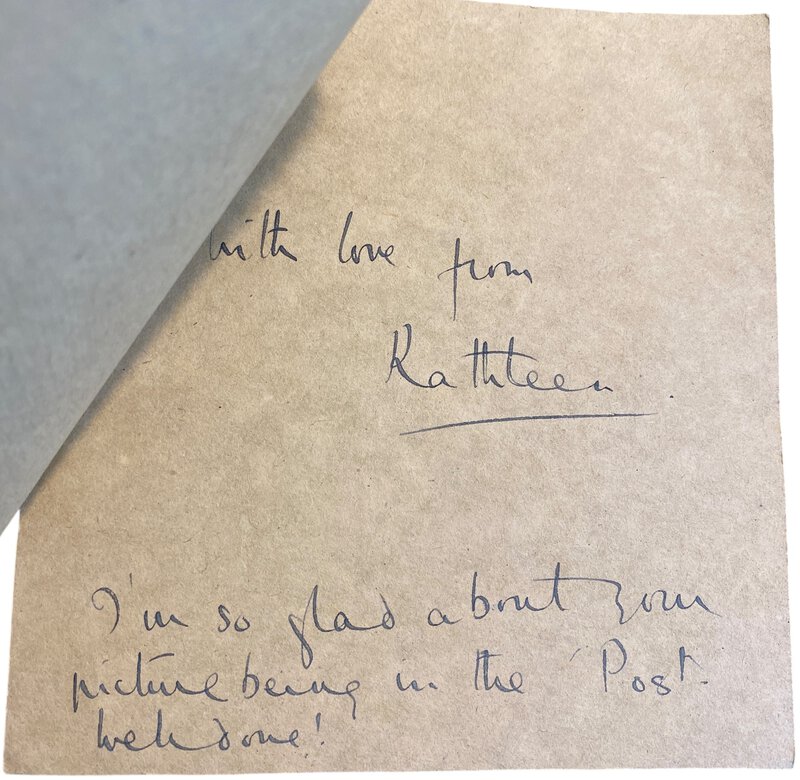 with love from
Kathleen.
I'm so glad about your
picture being in the 'Post.
Well done!